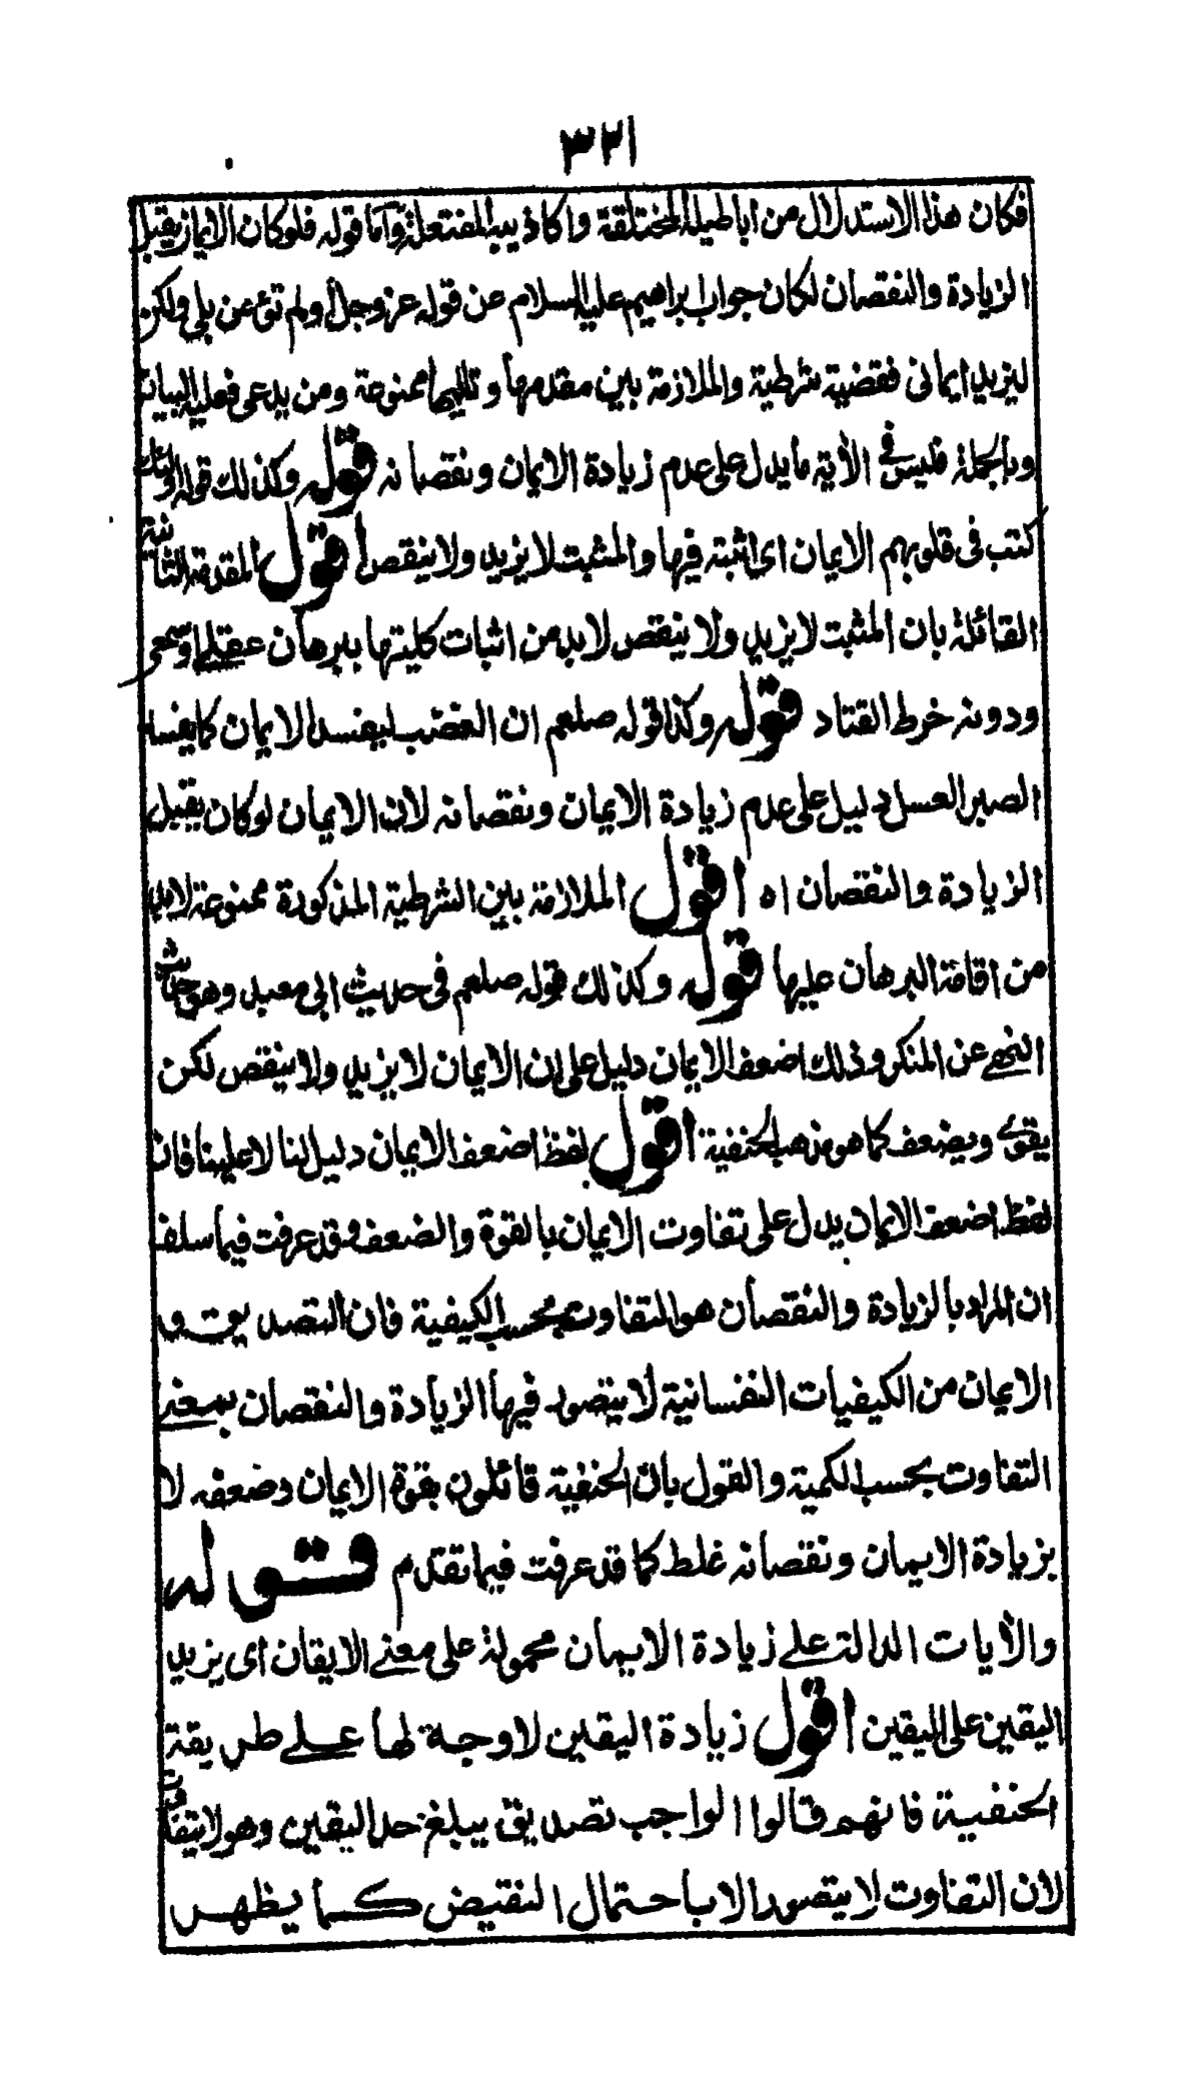 ٣٢١
فكان هذا الاستدلال من اباطيله المختلقة واكاذيبه المفتعلة وآما قوله فلوكان الايمان يقبل
الزيادة والنقصان لكان جواب ابراهيم عليه السلام عن قوله عز وجل اولم تؤمن بلى ولكن
ليزيد ايمانى فقضية شرطية والملازمة بين مقدمها وتاليها ممنوعة ومن يدعى فعليه البيان
وبالجملة فليس فى الأية ما يدل على عدم زيادة الايمان ونقصانه قوله وكذلك قوله اولئك
كتب فى قلوبهم الايمان اى اثبته فيها والمثبت لا يزيد ولا ينقص اقول المقدمة الثانية
القائلة بان المثبت لا يزيد ولا ينقص لابد من اثبات كليتها ببرهان عقلى او سمعى
ودونه خرط القتاد قوله وكذا قوله صلعم ان الغضب ليفسد الايمان كما يفسد
الصبر العسل دليل على عدم زيادة الايمان ونقصانه لان الايمان لوكان يقبل
الزيادة والنقصان اه اقول الملازمة بين الشرطية المذكورة ممنوعة لابد
من اقامة البرهان عليها قوله وكذلك قوله صلعم فى حديث ابى معبد وهو حديث
النهى عن المنكر وذلك اضعف الايمان دليل على ان الايمان لا يزيد ولا ينقص لكن
يقوى ويضعف كما هو مذهب الحنفية اقول لفظ اضعف الايمان دليل لنا لا علينا فان
لفظ اضعف الايمان يدل على تفاوت الايمان بالقوة والضعف وقد عرفت فيما سلف
ان المراد بالزيادة والنقصان هو التفاوت بحسب الكيفية فان التصديق و
الايمان من الكيفيات النفسانية لا يتصور فيها الزيادة والنقصان بمعنى
التفاوت بحسب الكمية والقول بان الحنفية قائلون بقوة الايمان وضعفه لا
بزيادة الايمان ونقصانه غلط كما قد عرفت فيما تقدم قوله
والأيات الدالة على زيادة الايمان محمولة على معنى الايقان اى يزيد
اليقين على اليقين اقول زيادة اليقين لا وجه لها على طريقة
الحنفية فانهم قالوا الواجب تصديق يبلغ حد اليقين وهو لا يتفاوت
لان التفاوت لا يتصور الا باحتمال النقيض كما يظهر